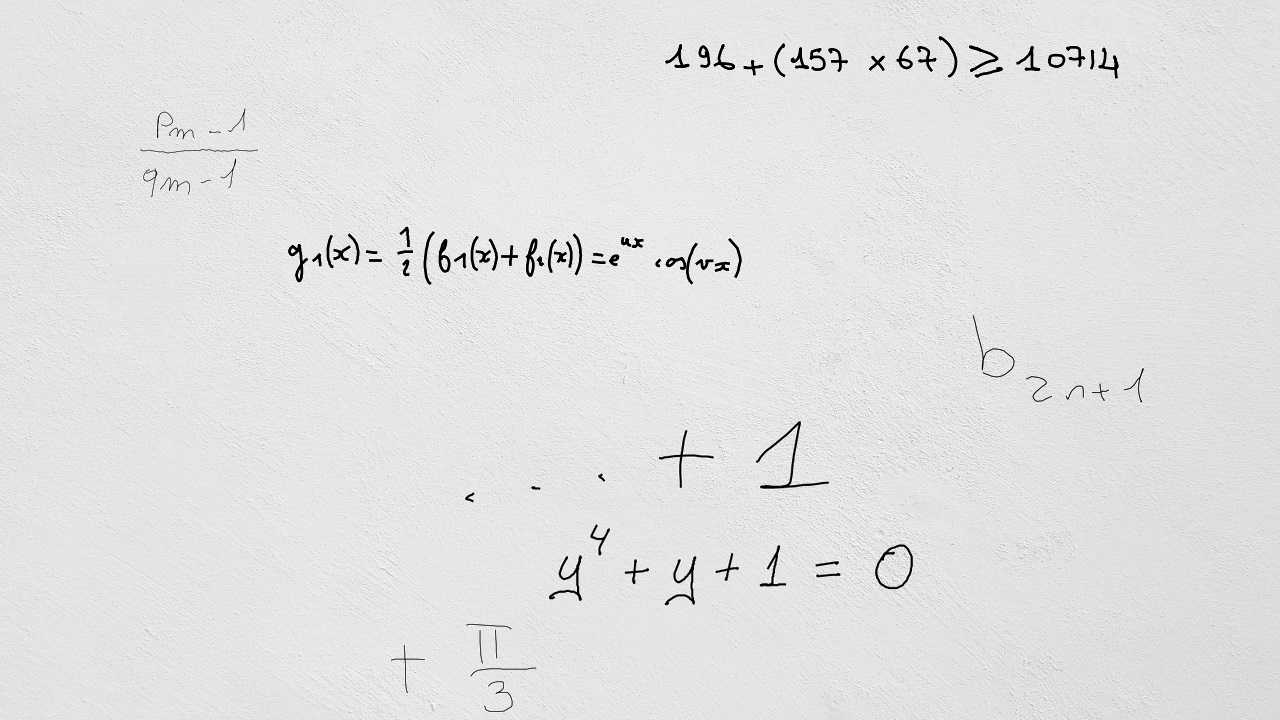 196 + (157 × 67) ⩾ 10714
Pm - 1
qm - 1
g₁(x) = 1/2 (f₁(x) + f₂(x)) = e^ux · cos(vx)
b₂ₙ₊₁
. . . + 1
y⁴ + y + 1 = 0
+ π/3